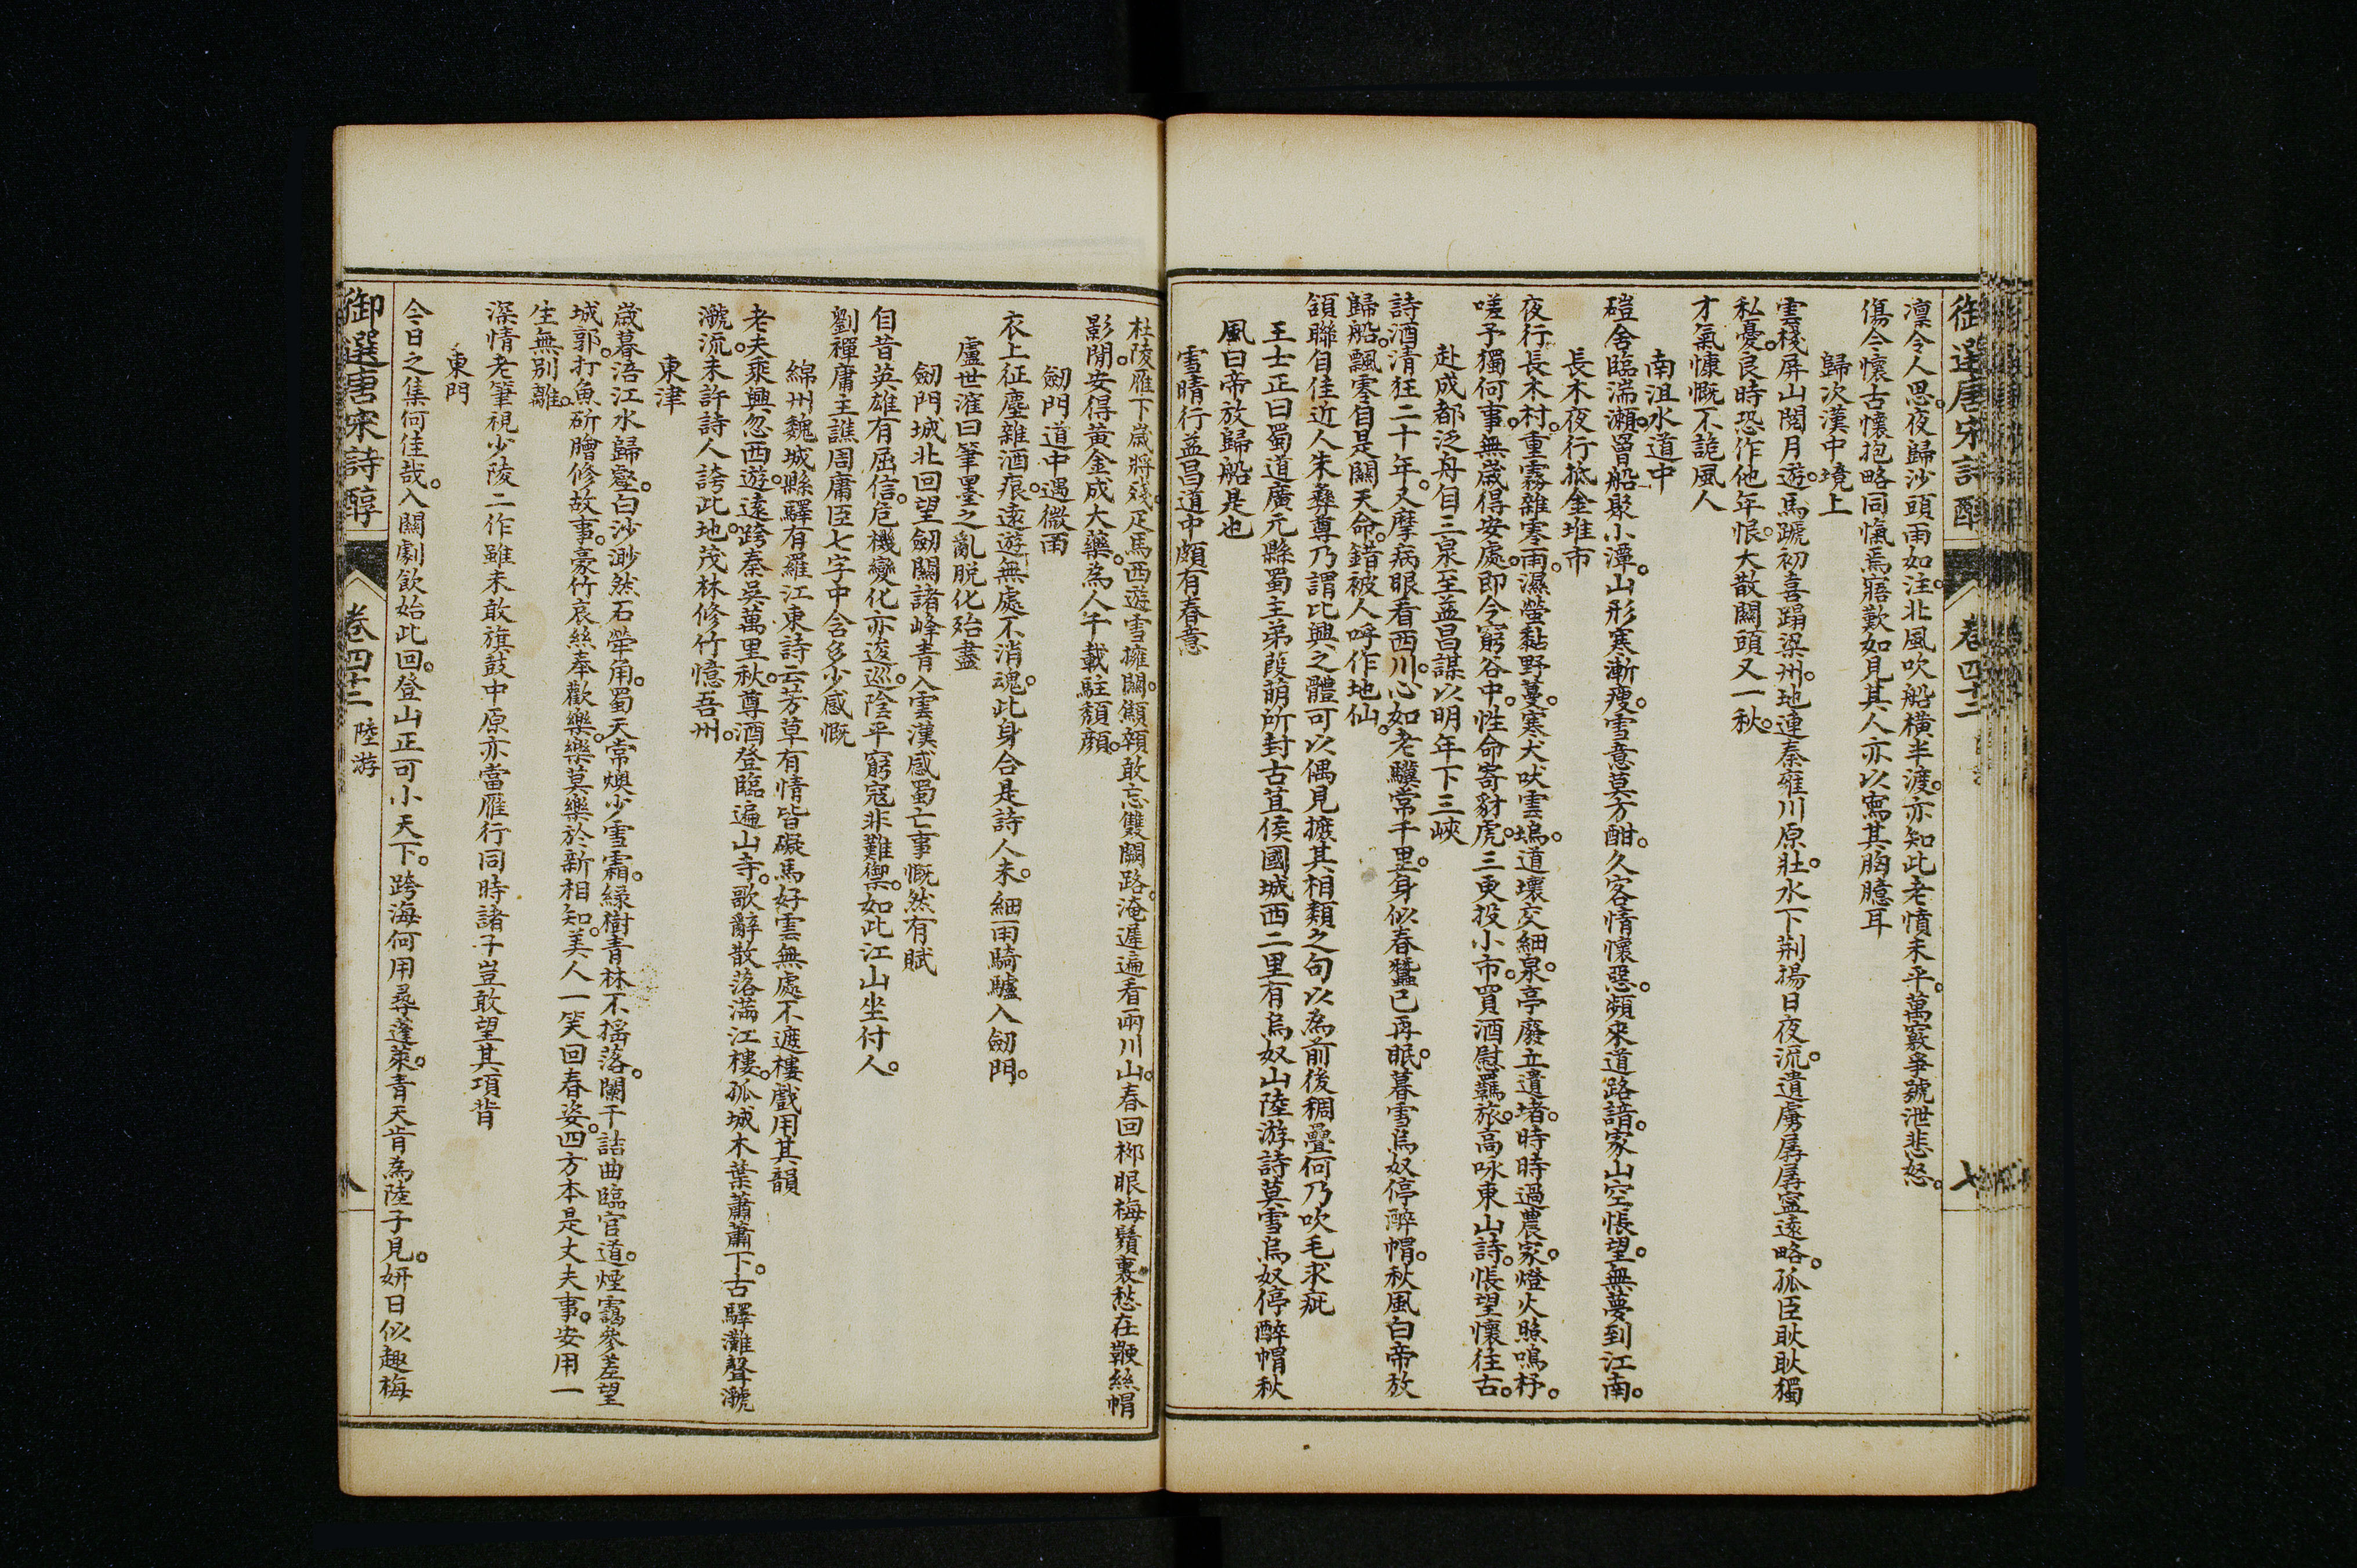 御選唐宋詩醇 卷四十二 七
凛令人思。夜歸沙頭雨如注。北風吹船橫半渡。亦知此老憤未平。萬竅爭號泄悲怒。
傷今懷古懷抱略同愾焉寤歎如見其人亦以寫其胸臆耳
歸次漢中境上
雲棧屏山閱月遊。馬蹏初喜蹋梁州。地連秦雍川原壯。水下荆揚日夜流。遺虜孱孱寧遠略。孤臣耿耿獨
私憂。良時恐作他年恨。大散關頭又一秋。
才氣慷慨不詭風人
南沮水道中
磑舍臨湍瀨。罾船聚小潭。山形寒漸瘦。雪意莫方酣。久客情懷惡。頻來道路諳。家山空悵望。無夢到江南。
長木夜行抵金堆市
夜行長木村。重霧雜零雨。濕螢黏野蔓。寒犬吠雲塢。道壞交細泉。亭廢立遺堵。時時過農家。燈火照鳴杼。
嗟予獨何事。無歲得安處。即今窮谷中。性命寄豺虎。三更投小市。買酒慰羈旅。高咏東山詩。悵望懷往古。
赴成都泛舟自三泉至益昌謀以明年下三峽
詩酒清狂二十年。又摩病眼看西川。心如老驥常千里。身似春蠶已再眠。暮雪烏奴停醉帽。秋風白帝放
歸船。飄零自是關天命。錯被人呼作地仙。
頷聯自佳近人朱彝尊乃謂比興之體可以偶見摭其相類之句以為前後稠疊何乃吹毛求疵
王士正曰蜀道廣元縣蜀主弟葭萌所封古苴侯國城西二里有烏奴山陸游詩莫雪烏奴停醉帽秋
風白帝放歸船是也
雪晴行益昌道中頗有春意
杜陵雁下歲將殘。疋馬西遊雪擁關。顑頷敢忘雙闕路。淹遲遍看兩川山。春回柳眼梅鬚裏愁在鞭絲帽
影間。安得黃金成大藥。為人千載駐頹顏。
劒門道中遇微雨
衣上征塵雜酒痕。遠遊無處不消魂。此身合是詩人未。細雨騎驢入劒門。
盧世㴶曰筆墨之亂脱化殆盡
劒門城北回望劒關諸峰青入雲漢感蜀亡事慨然有賦
自昔英雄有屈信。危機變化亦逡巡。陰平窮寇非難禦。如此江山坐付人。
劉禪庸主譙周庸臣七字中含多少感慨
綿州魏城縣驛有羅江東詩云芳草有情皆礙馬好雲無處不遮樓戲用其韻
老夫乘興忽西遊。遠跨秦吳萬里秋。尊酒登臨遍山寺。歌辭散落滿江樓。孤城木葉蕭蕭下。古驛灘聲㶁
㶁流。未許詩人誇此地。茂林修竹憶吾州。
東津
歲暮涪江水歸壑。白沙渺然石犖角。蜀天常燠少雪霜。緑樹青林不搖落。闌干詰曲臨官道。煙靄參差望
城郭。打魚斫膾修故事。豪竹哀絲奉歡樂。樂莫樂於新相知。美人一笑回春姿。四方本是丈夫事。安用一
生無别離。
深情老筆視少陵二作雖未敢旗鼓中原亦當雁行同時諸子豈敢望其項背
東門
今日之集何佳哉。入關劇飲始此回。登山正可小天下。跨海何用尋蓬萊。青天肯為陸子見。妍日似趣梅
御選唐宋詩醇 卷四十二 陸游 八